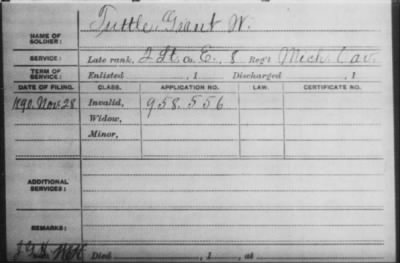 NAME OF SOLDIER: Tuttle, Grant W.
SERVICE: Late rank, 2 Lt Co. E, 8 Reg't Mich. Cav.
TERM OF SERVICE: Enlisted , 1 Discharged , 1
DATE OF FILING. CLASS. APPLICATION NO. LAW. CERTIFICATE NO.
1890. Nov. 28 Invalid, 958.556
Widow,
Minor,
ADDITIONAL SERVICES:
REMARKS:
Died , 1 , at